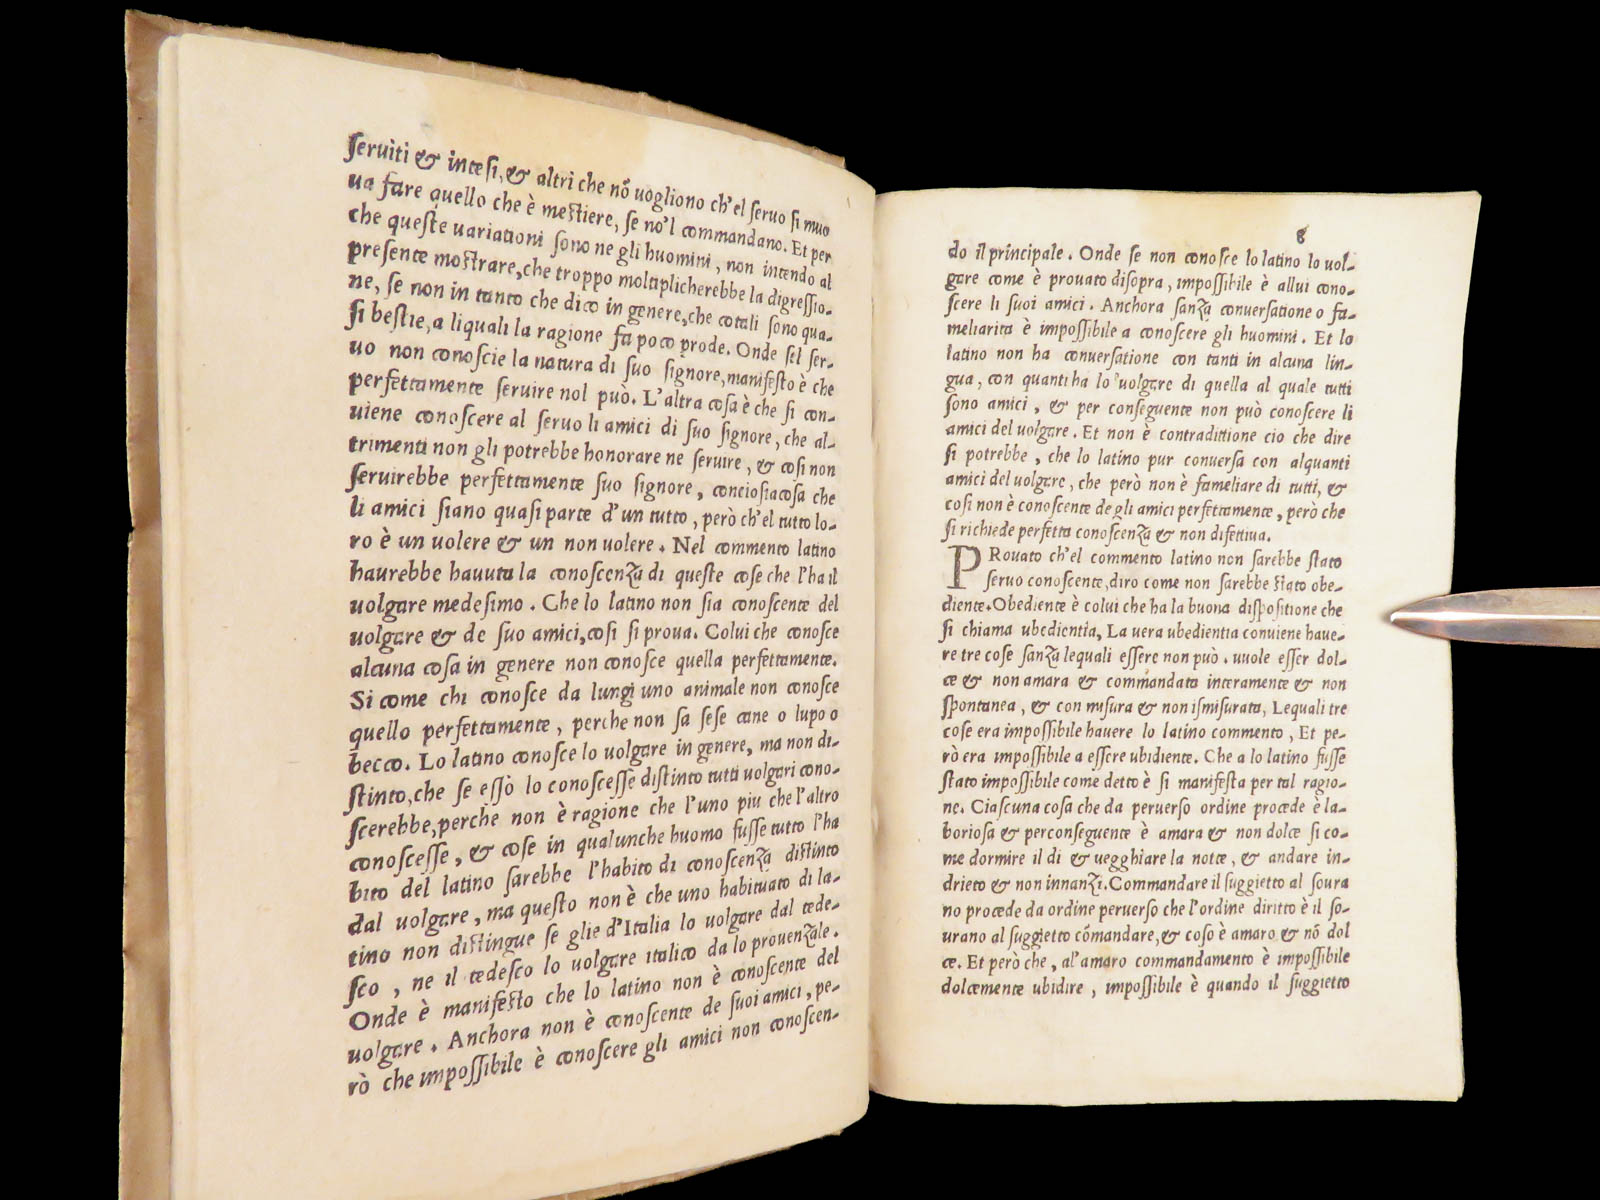 seruiti & intesi, & altri che nõ uogliono ch'el seruo si muo
ua fare quello che è mestiere, se no'l commandano. Et per
che queste uariationi sono ne gli huomini, non intendo al
presente mostrare, che troppo moltiplicherebbe la digressio-
ne, se non in tanto che dico in genere, che cotali sono qua-
si bestie, a liquali la ragione fa poco prode. Onde sel ser-
uo non conoscie la natura di suo signore, manifesto è che
perfettamente seruire nol può. L'altra cosa è che si con-
uiene conoscere al seruo li amici di suo signore, che al-
trimenti non gli potrebbe honorare ne seruire, & cosi non
seruirebbe perfettamente suo signore, conciosiacosa che
li amici siano quasi parte d'un tutto, però ch'el tutto lo-
ro è un uolere & un non uolere. Nel commento latino
haurebbe hauuta la conoscenza di queste cose che l'ha il
uolgare medesimo. Che lo latino non sia conoscente del
uolgare & de suo amici, cosi si proua. Colui che conosce
alcuna cosa in genere non conosce quella perfettamente.
Si come chi conosce da lungi uno animale non conosce
quello perfettamente, perche non sa sese cane o lupo o
becco. Lo latino conosce lo uolgare in genere, ma non di-
stinto, che se essò lo conoscesse distinto tutti uolgari cono-
scerebbe, perche non è ragione che l'uno piu che l'altro
conoscesse, & cose in qualunche huomo fusse tutto l'ha
bito del latino sarebbe l'habito di conoscenza distinto
dal uolgare, ma questo non è che uno habituato di la-
tino non distingue se glie d'Italia lo uolgare dal tede-
sco, ne il tedesco lo uolgare italico da lo prouenzale.
Onde è manifesto che lo latino non è conoscente del
uolgare. Anchora non è conoscente de suoi amici, pe-
rò che impossibile è conoscere gli amici non conoscen-
8
do il principale. Onde se non conosce lo latino lo uol-
gare come è prouato disopra, impossibile è allui cono-
scere li suoi amici. Anchora sanza conuersatione o fa-
meliarita è impossibile a conoscere gli huomini. Et lo
latino non ha conuersatione con tanti in alcuna lin-
gua, con quanti ha lo uolgare di quella al quale tutti
sono amici, & per conseguente non può conoscere li
amici del uolgare. Et non è contradittione cio che dire
si potrebbe, che lo latino pur conuersa con alquanti
amici del uolgare, che però non è fameliare di tutti, &
cosi non è conoscente de gli amici perfettamente, però che
si richiede perfetta conoscenza & non difettiua.
PRouato ch'el commento latino non sarebbe stato
seruo conoscente, diro come non sarebbe stato obe-
diente. Obediente è colui che ha la buona dispositione che
si chiama ubedientia, La uera ubedientia conuiene haue-
re tre cose sanza lequali essere non può. uuole esser dol-
ce & non amara & commandata interamente & non
spontanea, & con misura & non ismisurata, Lequali tre
cose era impossibile hauere lo latino commento, Et pe-
rò era impossibile a essere ubidiente. Che a lo latino fusse
stato impossibile come detto è si manifesta per tal ragio-
ne. Ciascuna cosa che da peruerso ordine procede è la-
boriosa & perconseguente è amara & non dolce si co-
me dormire il di & uegghiare la notte, & andare in-
drieto & non innanzi. Commandare il suggietto al soura
no procede da ordine peruerso che l'ordine diritto è il so-
urano al suggietto cõmandare, & coso è amaro & nõ dol
ce. Et però che, al'amaro commandamento è impossibile
dolcemente ubidire, impossibile è quando il suggietto